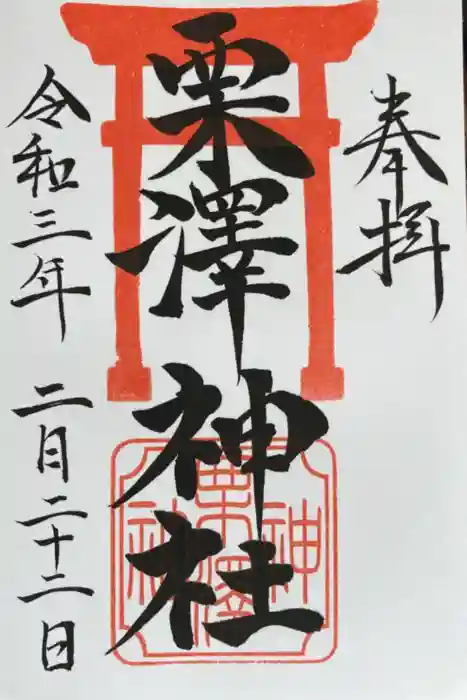 奉拝
栗澤神社
令和三年 二月二十二日
栗澤
神社